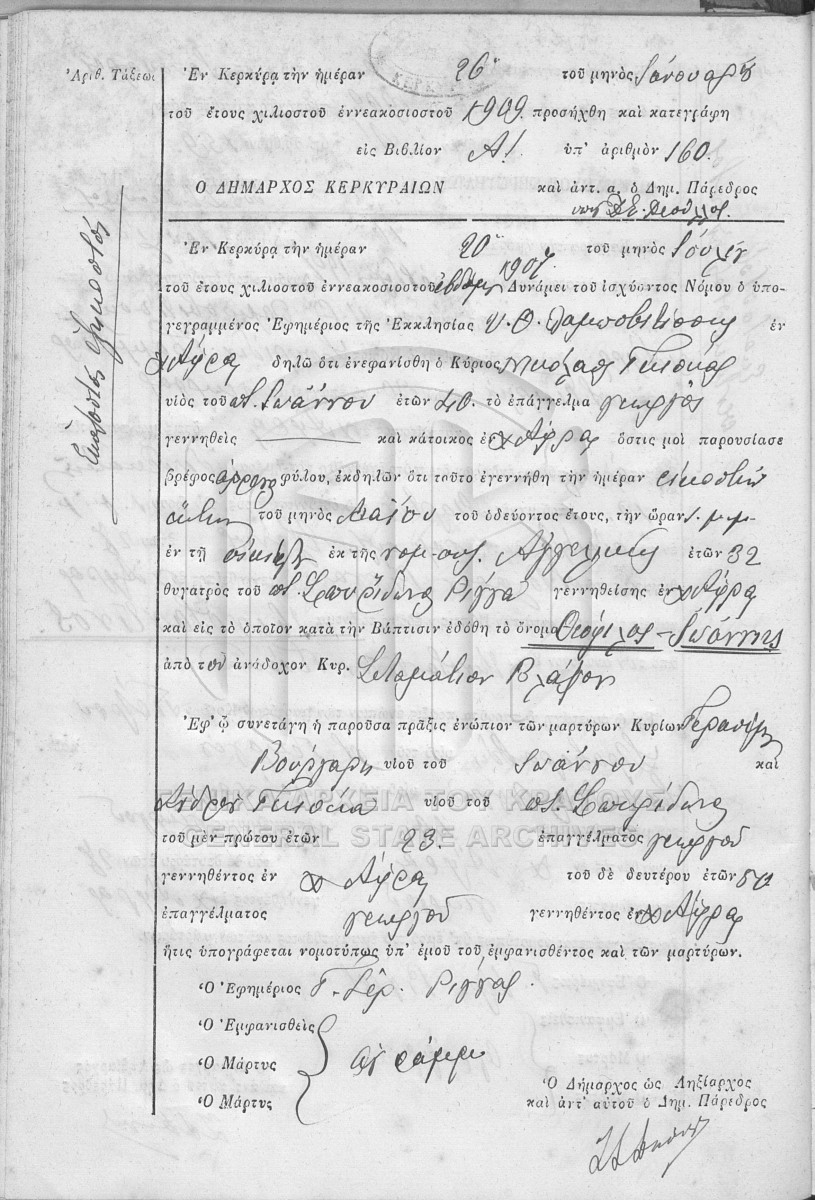 Ἀριθ. Τάξεως
Ἐν Κερκύρᾳ τὴν ἡμέραν 26η τοῦ μηνὸς Ἰανουαρίου
τοῦ ἔτους χιλιοστοῦ ἐννεακοσιοστοῦ 1909 προσήχθη καὶ κατεγράφη
εἰς Βιβλίον Α! ὑπ' ἀριθμὸν 160.
Ο ΔΗΜΑΡΧΟΣ ΚΕΡΚΥΡΑΙΩΝ καὶ ἀντ. α. ὁ Δημ. Πάρεδρος
Ἑκατοστὸς ἑξηκοστός
Ἐν Κερκύρᾳ τὴν ἡμέραν 20η τοῦ μηνὸς Ἰουλίου
1907
τοῦ ἔτους χιλιοστοῦ ἐννεακοσιοστοῦ ἑβδόμου Δυνάμει τοῦ ἰσχύοντος Νόμου ὁ ὑπο-
γεγραμμένος Ἐφημέριος τῆς Ἐκκλησίας Υ. Θ. Λαμποβιτίσσης ἐν
χ Ἄφρα δηλῶ ὅτι ἐνεφανίσθη ὁ Κύριος Νικόλαος Γκιόκας
υἱὸς τοῦ ποτ. Ἰωάννου ἐτῶν 40. τὸ ἐπάγγελμα γεωργὸς
γεννηθεὶς καὶ κάτοικος ἐν χ Ἄφρα ὅστις μοὶ παρουσίασε
βρέφος ἄρρεν φύλου, ἐκδηλῶν ὅτι τοῦτο ἐγεννήθη τὴν ἡμέραν εἰκοστὴν
ἕκτην τοῦ μηνὸς Μαΐου τοῦ ὁδεύοντος ἔτους, τὴν ὥραν 1. μ.μ.
ἐν τῇ οἰκίᾳ ἐκ τῆς νομ. συζ. Ἀγγελικῆς ἐτῶν 32
θυγατρὸς τοῦ ποτ. Σπυρίδωνα Ρίγγα γεννηθείσης ἐν χ Ἄφρα
καὶ εἰς τὸ ὁποῖον κατὰ τὴν Βάπτισιν ἐδόθη τὸ ὄνομα Θεόφιλος - Ἰωάννης
ἀπὸ τὸν ἀνάδοχον Κυρ. Σταμάτιον Βλάχον
Ἐφ' ᾧ συνετάγη ἡ παροῦσα πρᾶξις ἐνώπιον τῶν μαρτύρων Κυρίων Γερασίμου
Βούλγαρη υἱοῦ τοῦ Ἰωάννου καὶ
Ἀνδρέου Γκιόκα υἱοῦ τοῦ ποτ. Σπυρίδωνα
τοῦ μὲν πρώτου ἐτῶν 23. ἐπαγγέλματος γεωργοῦ
γεννηθέντος ἐν χ Ἄφρα τοῦ δὲ δευτέρου ἐτῶν 50
ἐπαγγέλματος γεωργοῦ γεννηθέντος ἐν χ Ἄφρα
ἥτις ὑπογράφεται νομοτύπως ὑπ' ἐμοῦ τοῦ ἐμφανισθέντος καὶ τῶν μαρτύρων.
Ὁ Ἐφημέριος Γ. Ἱερ. Ρίγγας.
Ὁ Ἐμφανισθεὶς
Ὁ Μάρτυς ἀγράμμ
Ὁ Μάρτυς
Ὁ Δήμαρχος ὡς Ληξίαρχος
καὶ ἀντ' αὐτοῦ ὁ Δημ. Πάρεδρος
ΓΕΝΙΚΑ ΑΡΧΕΙΑ ΤΟΥ ΚΡΑΤΟΥΣ
GENERAL STATE ARCHIVES